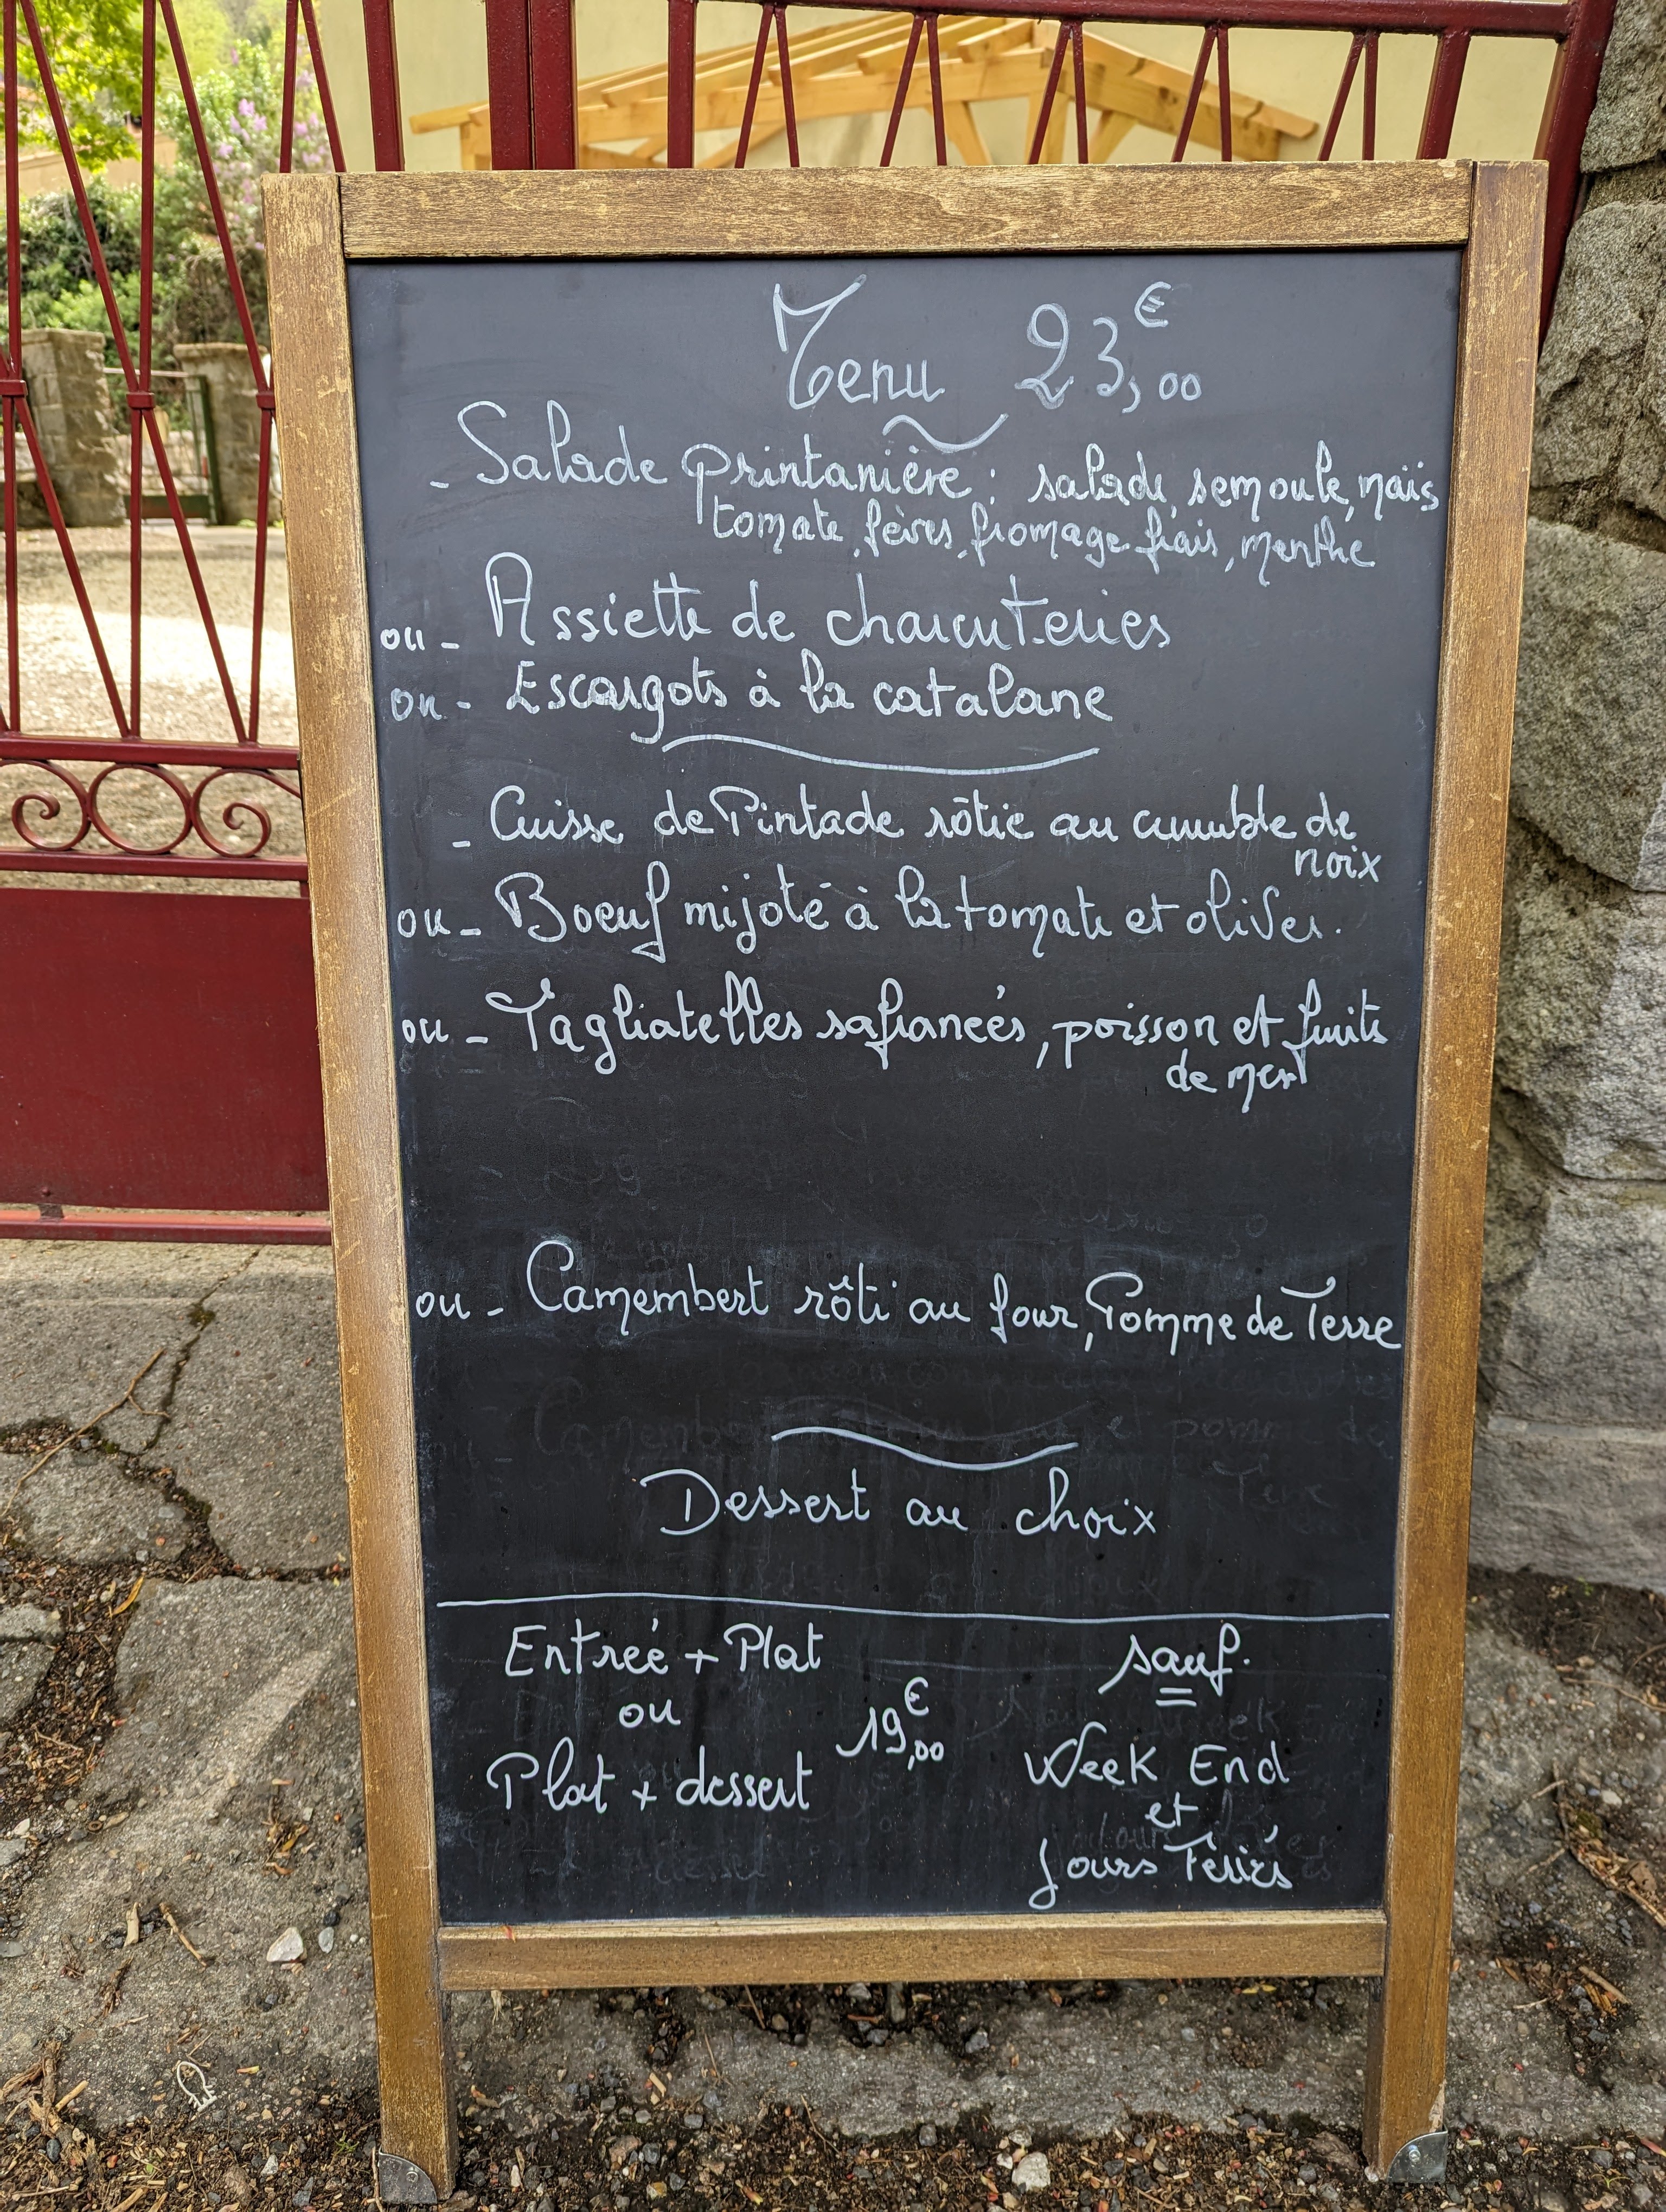 Menu 23,00€
- Salade printanière : salade, semoule, maïs
tomate, fèves, fromage frais, menthe
ou - Assiette de charcuteries
ou - Escargots à la catalane
- Cuisse de Pintade rôtie au crumble de
noix
ou - Boeuf mijoté à la tomate et olives.
ou - Tagliatelles safranées, poisson et fruits
de mer
ou - Camembert rôti au four, Pomme de Terre
Dessert au choix
Entrée + Plat
ou
Plat + dessert
19,00€
sauf.
Week End
et
Jours Fériés